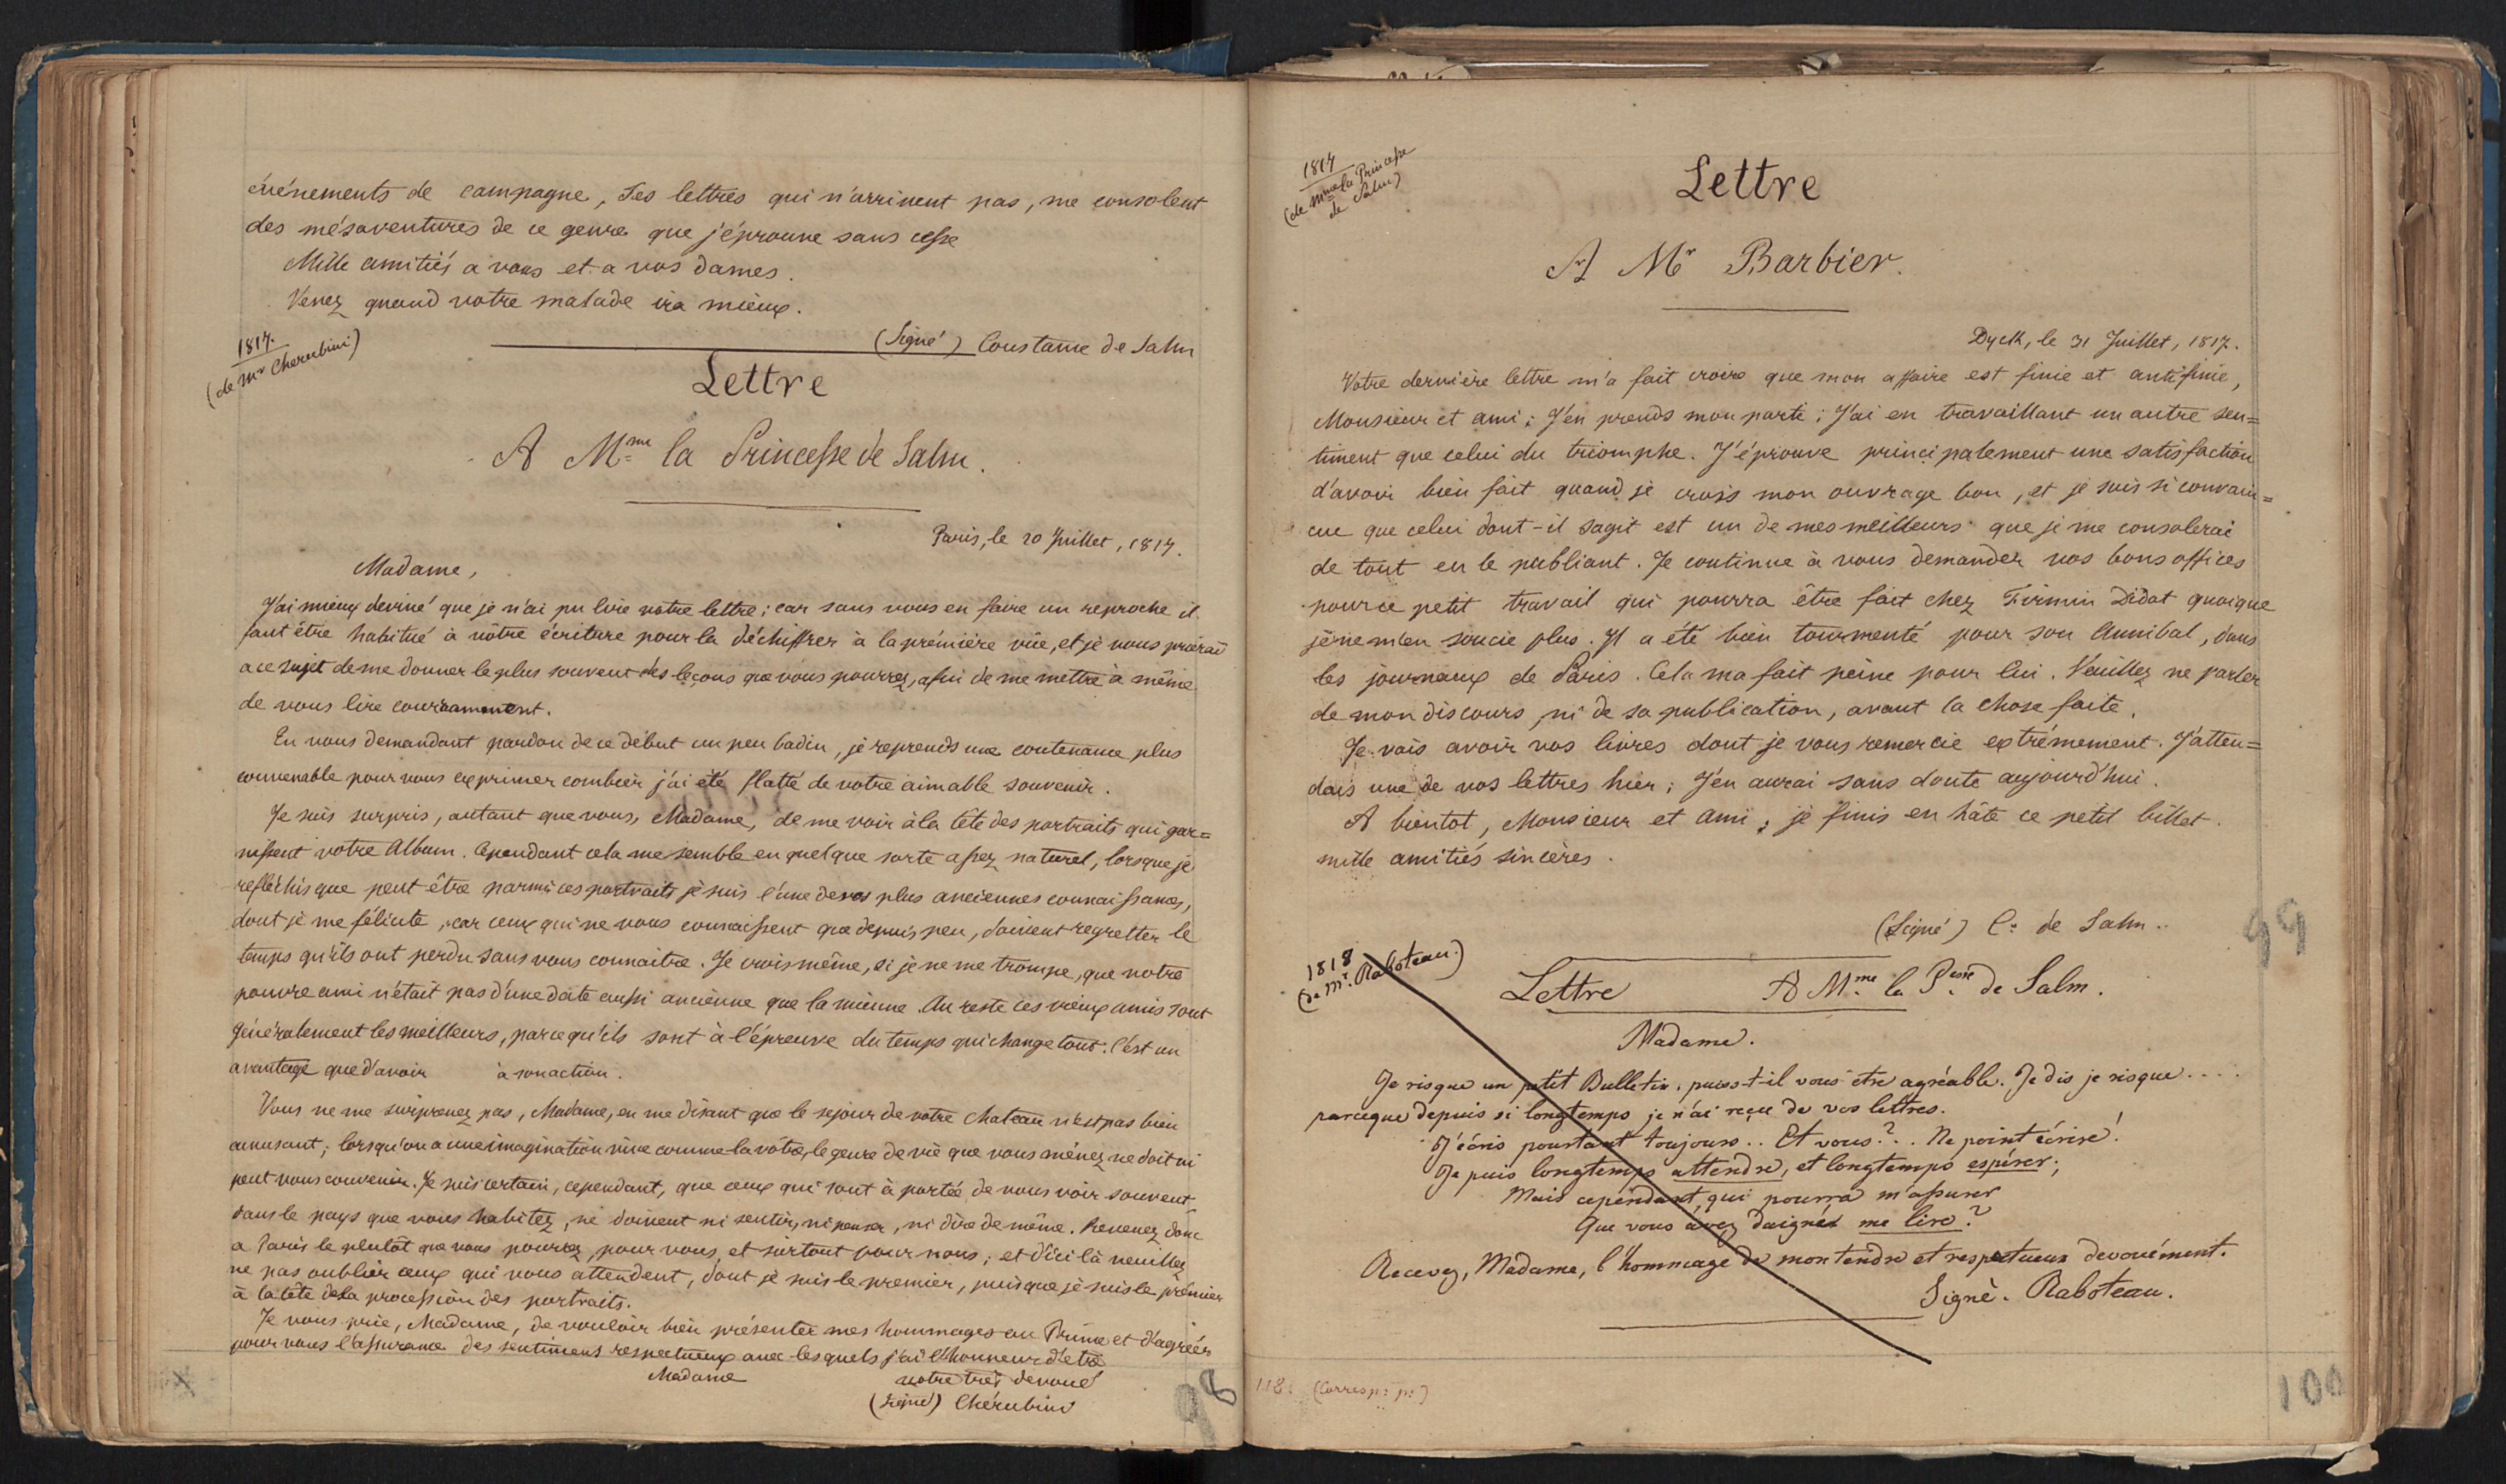 événements de campagne, Les lettres qui n'arrivent pas, me consolent
des mésaventures de ce genre que j'éprouve sans cesse
Mille amitiés a vous et a vos dames.
Venez quand votre malade ira mieux.
(Signé) Constance de Salm
1817.
(de Mr Cherubini)
Lettre
A Mme la Princesse de Salm.
Paris, le 20 Juillet, 1817.
Madame,
J'ai mieux deviné que je n'ai pu lire votre lettre; car sans vous en faire un reproche il
faut être habitué à vôtre écriture pour la déchiffrer à la prémière vüe, et je vous prierai
a ce sujet de me donner le plus souvent des leçons que vous pourrez, afin de me mettre à même
de vous lire couramment.
En vous demandant pardon de ce début un peu badin, je reprends une contenance plus
convenable pour vous exprimer combien j'ai été flatté de votre aimable souvenir.
Je suis surpris, autant que vous, Madame, de me voir à la tête des portraits qui gar=
nissent votre Album. Cependant cela me semble en quelque sorte assez naturel, lorsque je
refléchis que peut être parmi ces portraits je suis l'une de vos plus anciennes connaissances,
dont je me félicite, car ceux qui ne vous connaissent que depuis peu, doivent regretter le
temps qu'ils ont perdu sans vous connaitre. Je crois même, si je ne me trompe, que notre
pauvre ami n'était pas d'une date aussi ancienne que la mienne. Au reste ces vieux amis sont
généralement les meilleurs, parcequ'ils sont à l'épreuve du temps qui change tout. C'est un
avantage que d'avoir à son action.
Vous ne me surprenez pas, Madame, en me disant que le sejour de votre Chateau n'est pas bien
amusant; lorsqu'on a une imagination vive comme la vôtre, le genre de vie que vous ménez ne doit ni
peut vous convenir. Je suis certain, cependant, que ceux qui sont à portée de vous voir souvent
dans le pays que vous habitez, ne doivent ni sentir, ni penser, ni dire de même. Revenez donc
a Paris le plutôt que vous pourrez, pour vous, et surtout pour nous; et d'ici là veuillez
ne pas oublier ceux qui vous attendent, dont je suis le premier, puisque je suis le prémier
à la tête de la procession des portraits.
Je vous prie, Madame, de vouloir bien présenter mes hommages au Prince et d'agréer
pour vous l'assurance des sentimens respectueux avec lesquels j'ai l'honneur d'etre
Madame votre très devoué
(Signé) Chérubini
98
1817
(de Mme la Princesse
de Salm)
Lettre
A Mr Barbier.
Dyck, le 31 Juillet, 1817.
Votre dernière lettre m'a fait croire que mon affaire est finie et antifinie,
Monsieur et ami; J'en prends mon parti; J'ai en travaillant un autre sen=
timent que celui du triomphe. J'éprouve principalement une satisfaction
d'avoir bien fait quand je crois mon ouvrage bon, et je suis si convain=
cue que celui dont-il sagit est un de mes meilleurs que je me consolerai
de tout en le publiant. Je continue à vous demander vos bons offices
pour ce petit travail qui pourra être fait chez Firmin Didot quoique
je ne m'en soucie plus. Il a été bien tourmenté pour son Annibal, dans
les journaux de Paris. Cela ma fait peine pour lui. Veuillez ne parler
de mon discours, ni de sa publication, avant la chose faite.
Je vais avoir vos livres dont je vous remercie extrémement. J'atten=
dais une de vos lettres hier; J'en aurai sans doute aujourd'hui.
A bientot, Monsieur et Ami; je finis en hâte ce petit billet.
mille amitiés sincères.
(Signé) C. de Salm..
99
1818
(de Mr. Raboteau.)
Lettre A Mme la Pesse de Salm.
Madame.
Je risque un petit Bulletin, puisse-t-il vous être agréable. Je dis je risque....
parceque depuis si longtemps je n'ai reçu de vos lettres.
J'écris pourtant toujours.. Et vous?.. Ne point écrire!
Je puis longtemps attendre, et longtemps espérer;
Mais cependant, qui pourra m'assurer
Que vous avez daigné me lire?
Recevez, Madame, l'hommage de mon tendre et respectueux devouément.
Signé. Raboteau.
118. (Corresp: p:)
100